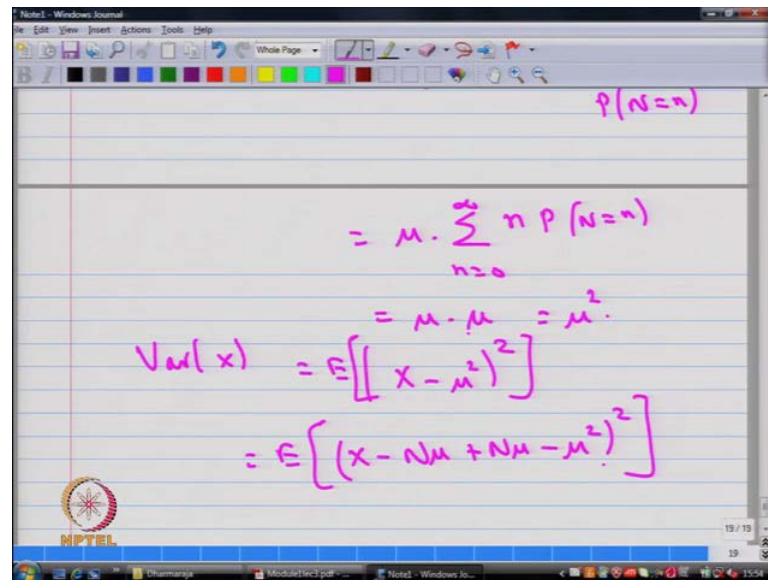 Note1 - Windows Journal
File Edit View Insert Actions Tools Help
Whole Page
B I
P(N=n)
= μ. ∑ n P(N=n)
∞
n=0
= μ. μ = μ².
Var(x) = E[(x - μ²)²]
= E[(x - Nμ + Nμ - μ²)²]
NPTEL
19 / 19
19
Dharmaraja
Module1lec3.pdf - ...
Note1 - Windows Jo...
15:54